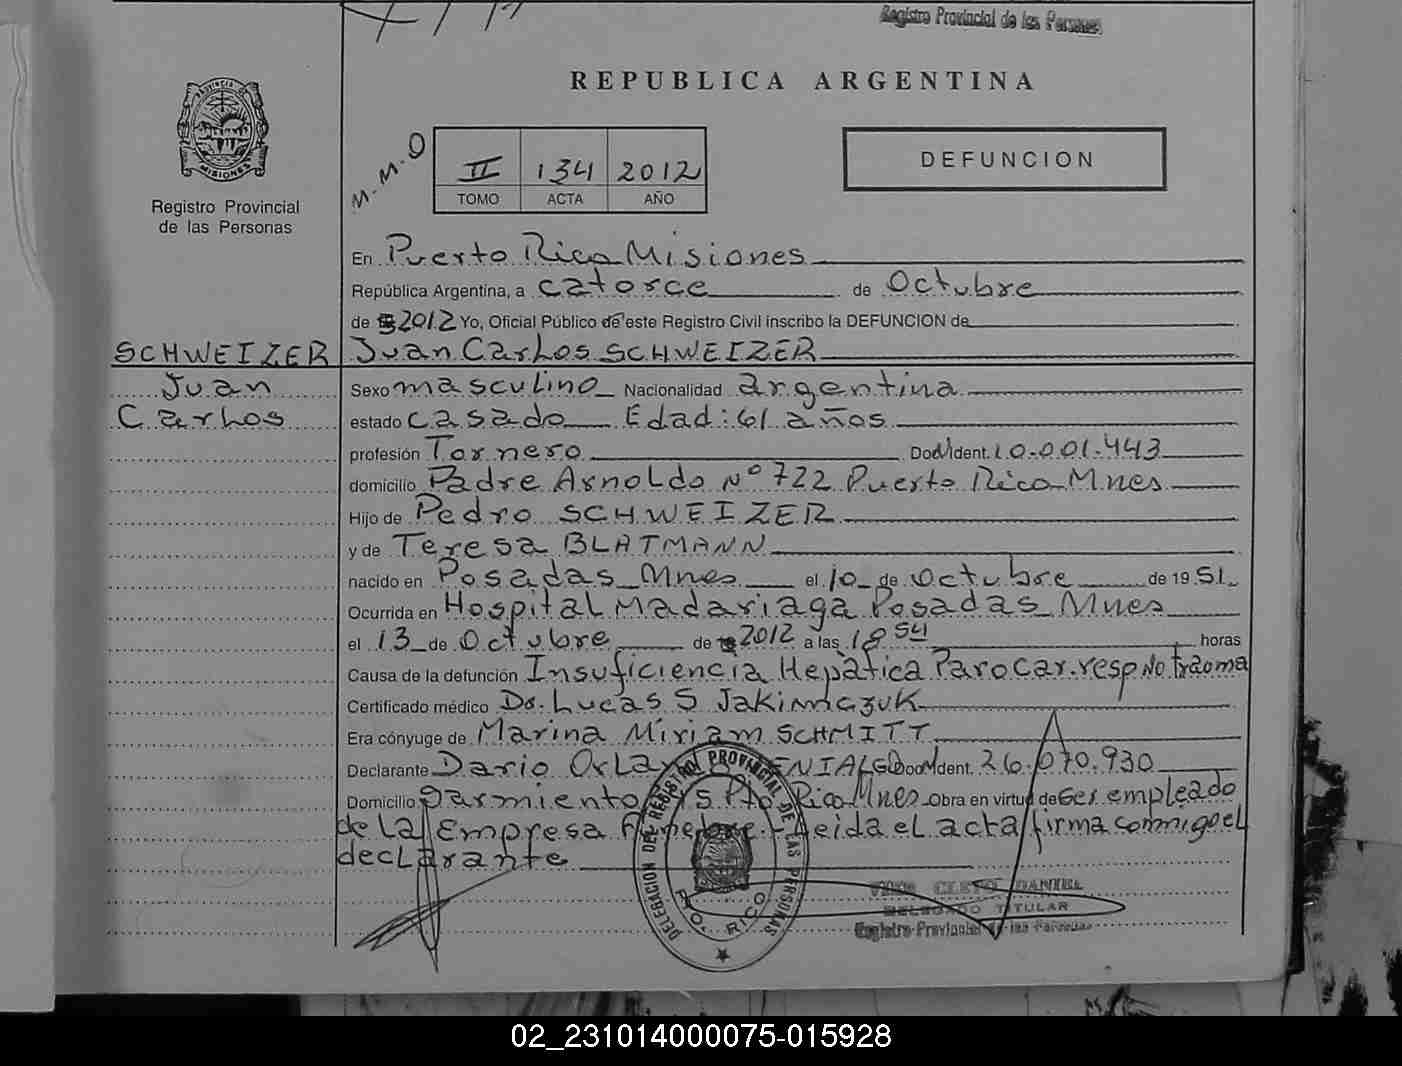 Registro Provincial de las Personas
REPUBLICA ARGENTINA
PROVINCIA DE
MISIONES
Registro Provincial
de las Personas
M.M.O
II 134 2012
TOMO ACTA AÑO
DEFUNCION
En Puerto Rico Misiones
República Argentina, a catorce de Octubre
de 2012 Yo, Oficial Público de este Registro Civil inscribo la DEFUNCION de
SCHWEIZER Juan Carlos SCHWEIZER
Juan
Carlos
Sexo masculino Nacionalidad argentina
estado casado Edad: 61 años
profesión Tornero Doc. Ident. 10.001.443
domicilio Padre Arnoldo Nº 722 Puerto Rico Mnes
Hijo de Pedro SCHWEIZER
y de Teresa BLATMANN
nacido en Posadas Mnes el 10 de Octubre de 1951.
Ocurrida en Hospital Madariaga Posadas Mnes
el 13 de Octubre de 2012 a las 18 54 horas
Causa de la defunción Insuficiencia Hepàtica Paro Car.resp No trauma
Certificado médico Dr. Lucas S Jakimczuk
Era cónyuge de Marina Miriam SCHMITT
Declarante Dario Doc. Ident. 26.070.930
Domicilio Sarmiento Pto Rico Mnes Obra en virtud de Ser empleado
de la Empresa Funebre.- Leida el acta firma conmigo el
declarante
DELEGACION DEL REGISTRO PROVINCIAL DE LAS PERSONAS
PTO. RICO
CLETO DANIEL
DELEGADO TITULAR
Registro Provincial de las Personas
02_231014000075-015928